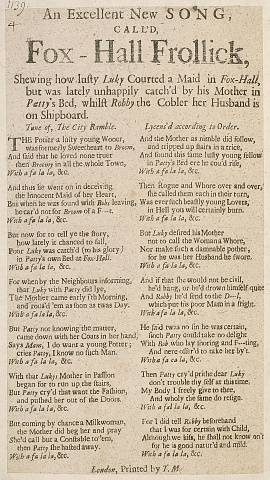 1139.
4
An Excellent New SONG,
CALL'D,
Fox-Hall Frollick,
Shewing how lusty Luky Courted a Maid in Fox-Hall,
but was lately unhappily catch'd by his Mother in
Patty's Bed, whilst Robby the Cobler her Husband is
on Shipboard.
Tune of, The City Ramble.
Lycens'd according to Order.
THE Potter a lusty young Wooer,
was formerly Sweetheart to Broom,
And said that he loved none truer
then Broomy in all the whole Town,
With a fa la la, &c.
And thus he went on in deceiving
the Innocent Maid of her Heart,
But when he was found with Bobs leaving,
he car'd not for Broom of a F--t.
With a fa la la, &c.
But now for to tell ye the Story,
how lately it chanced to fall,
Poor Luky was catch'd (to his glory)
in Patty's own Bed at Fox-Hall.
With a fa la la, &c.
For when by the Neighbours informing,
that Luky with Patty did lye,
The Mother came early i'th Morning,
and rouz'd 'em as soon as twas Day.
With a fa la la, &c.
But Patty not knowing the matter,
came down with her Coats in her hand,
Says Mame, I do want a young Potter;
cries Patty, I know no such Man.
With a fa la la, &c.
With that Luky's Mother in Passion
began for to run up the stairs,
But Patty cry'd that want the Fashion,
and pushed her out of the Doors.
With a fa la la, &c.
But coming by chance a Milkwoman,
the Mother did beg her and pray
She'd call but a Constable to 'em,
then Patty she hasted away.
With a fa la la, &c.
And the Mother as nimble did follow,
and tripped up stairs in a trice,
And found this same lusty young fellow
in Patty's Bed ere he could rise,
With a fa la la, &c.
Then Rogue and Whore over and over,
she called them each in their turn,
Was ever such beastly young Lovers,
in Hell you will certainly burn.
With a fa la la, &c.
But Luky desired his Mother
not to call the Woman a Whore,
Nor make such a damnable pother,
for he was her Husband he swore.
With a fa la la, &c.
And if that she would not be civil,
he'd hang, or he'd drown himself quite
And Robby he'd send to the D---l,
which put his poor Mam in a fright.
With a fa la la, &c.
He said twas no sin he was certain,
such Patty could take no delight
With Bob who lay snoring and F---ting,
And nere offer'd to take her by't.
With a fa la la, &c.
Then Patty cry'd prithe dear Luky
don't trouble thy self at this time.
My Body I freely give to thee,
And wholly the same do resign.
With a fa la la, &c.
For I did tell Robby beforehand
that I was for certain with Child,
Although we kiss, he shall not know on't
for he is good natur'd and mild.
With a fa la la, &c.
London, Printed by T. M.